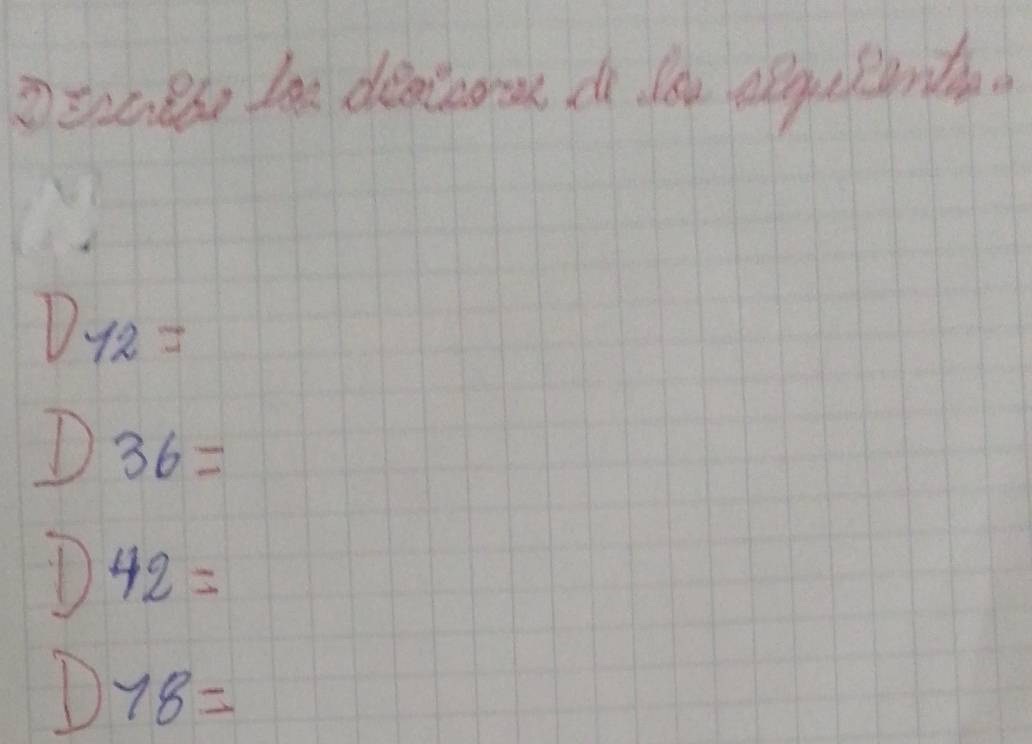 Describe los divisores de los siguientes.
N.
D12=
D36=
D42=
D18=